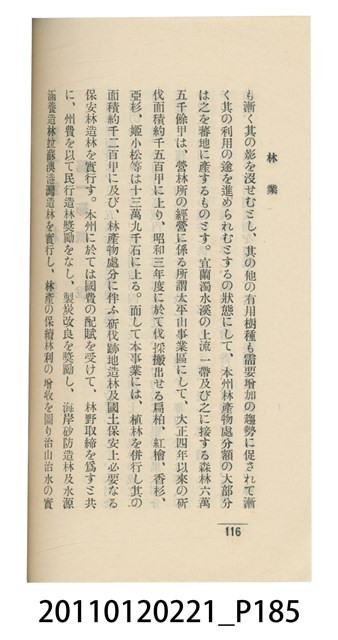 林業
も漸く其の影を沒せむとし、其の他の有用樹種も需要增加の趨勢に促されて漸
く其の利用の途を進められむとするの狀態にして、本州林產物處分額の大部分
は之を蕃地に產するものとす。宜蘭濁水溪の上流一帶及び之に接する森林六萬
五千餘甲は、營林所の經營に係る所謂太平山事業區にして、大正四年以來の斫
伐面積約千五百甲に上り、昭和三年度に於て伐採搬出せる扁柏、紅檜、香杉、
亞杉、姬小松等は十三萬九千石に上る。而して本事業には、植林を併行し其の
面積約千二百甲に及び、林產物處分に伴ふ斫伐跡地造林及國土保安上必要なる
保安林造林を實行す。本州に於ては國費の配賦を受けて、林野取締を爲すと共
に、州費を以て民行造林獎勵をなし、製炭改良を獎勵し、海岸砂防造林及水源
涵養造林拉蘇漢造灣造林を實行し、林產の保續林利の增收を圖り治山治水の實
116
20110120221_P185